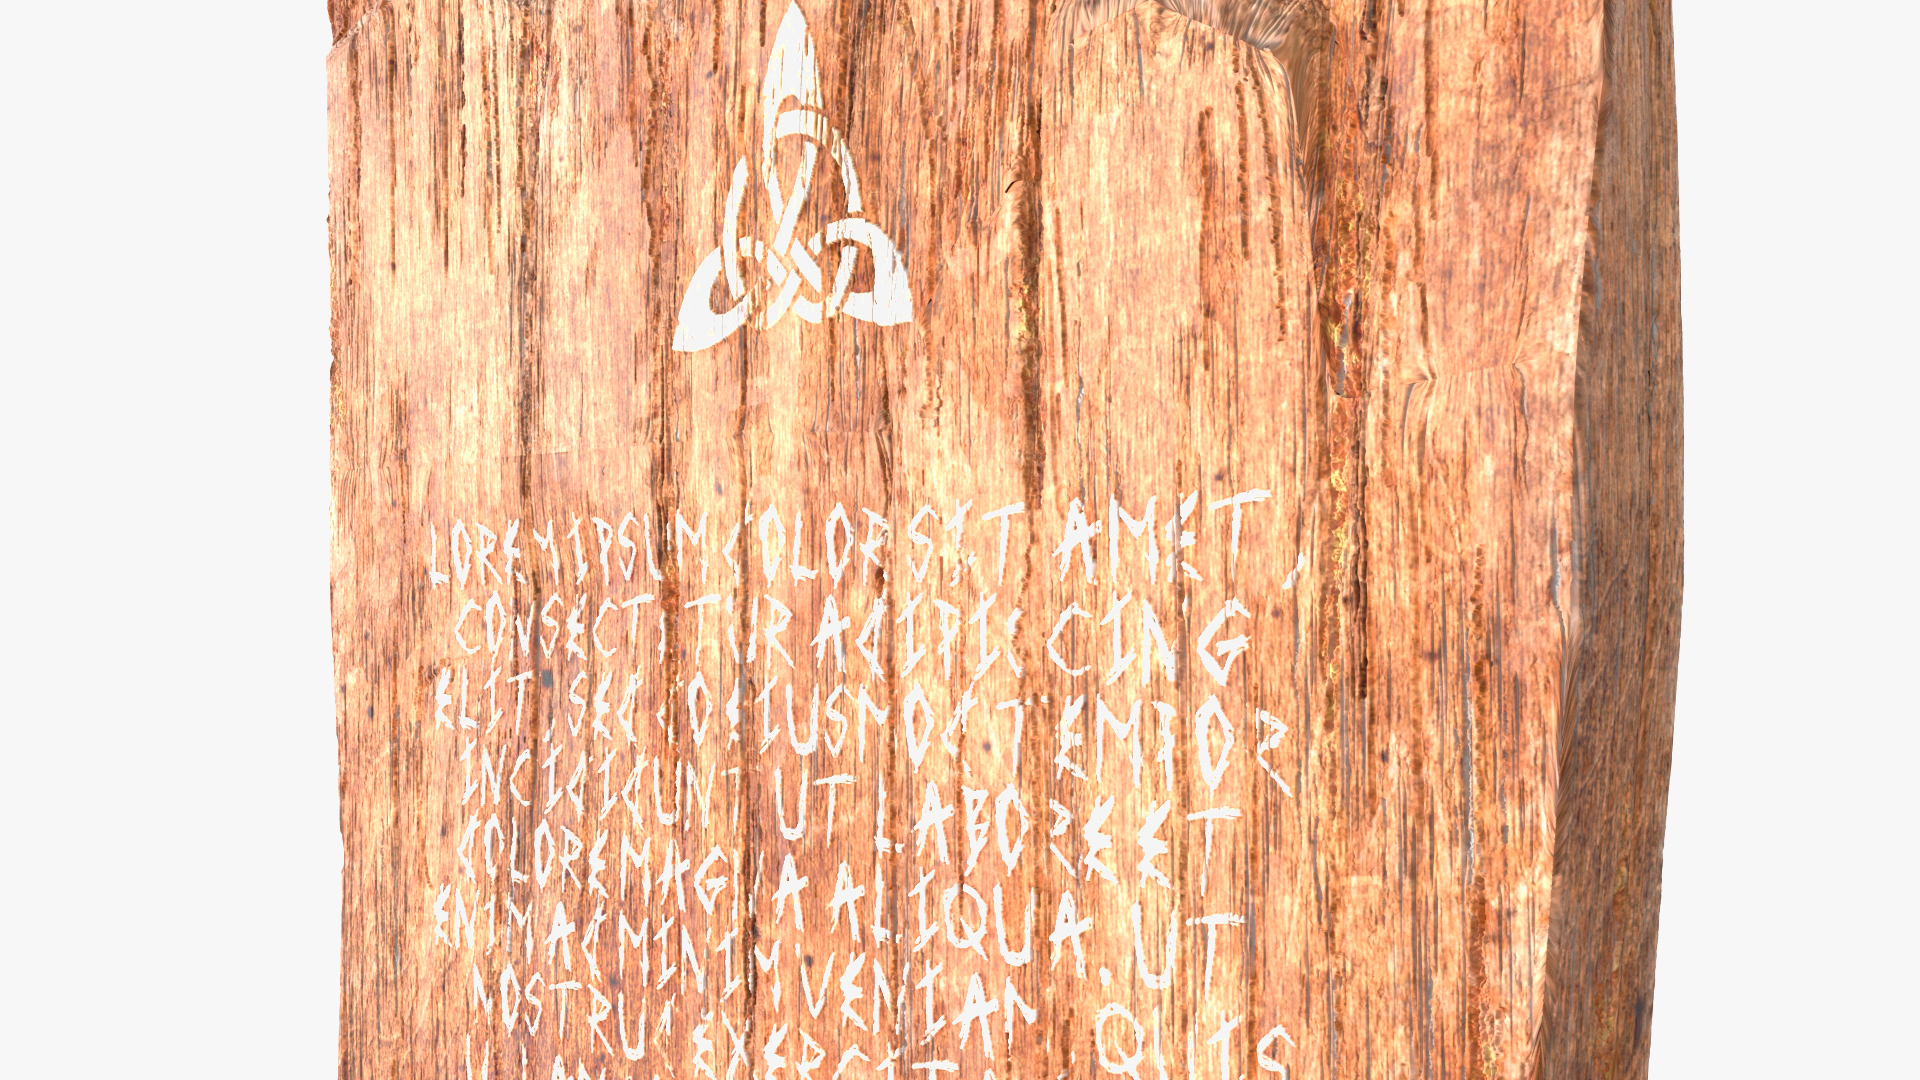 LOREM IPSUM DOLOR SIT AMET,
CONSECTETUR ADIPISCING
ELIT, SED DO EIUSMOD TEMPOR
INCIDIDUNT UT LABORE ET
DOLORE MAGNA ALIQUA. UT
ENIM AD MINIM VENIAM, QUIS
NOSTRUD EXERCITATION